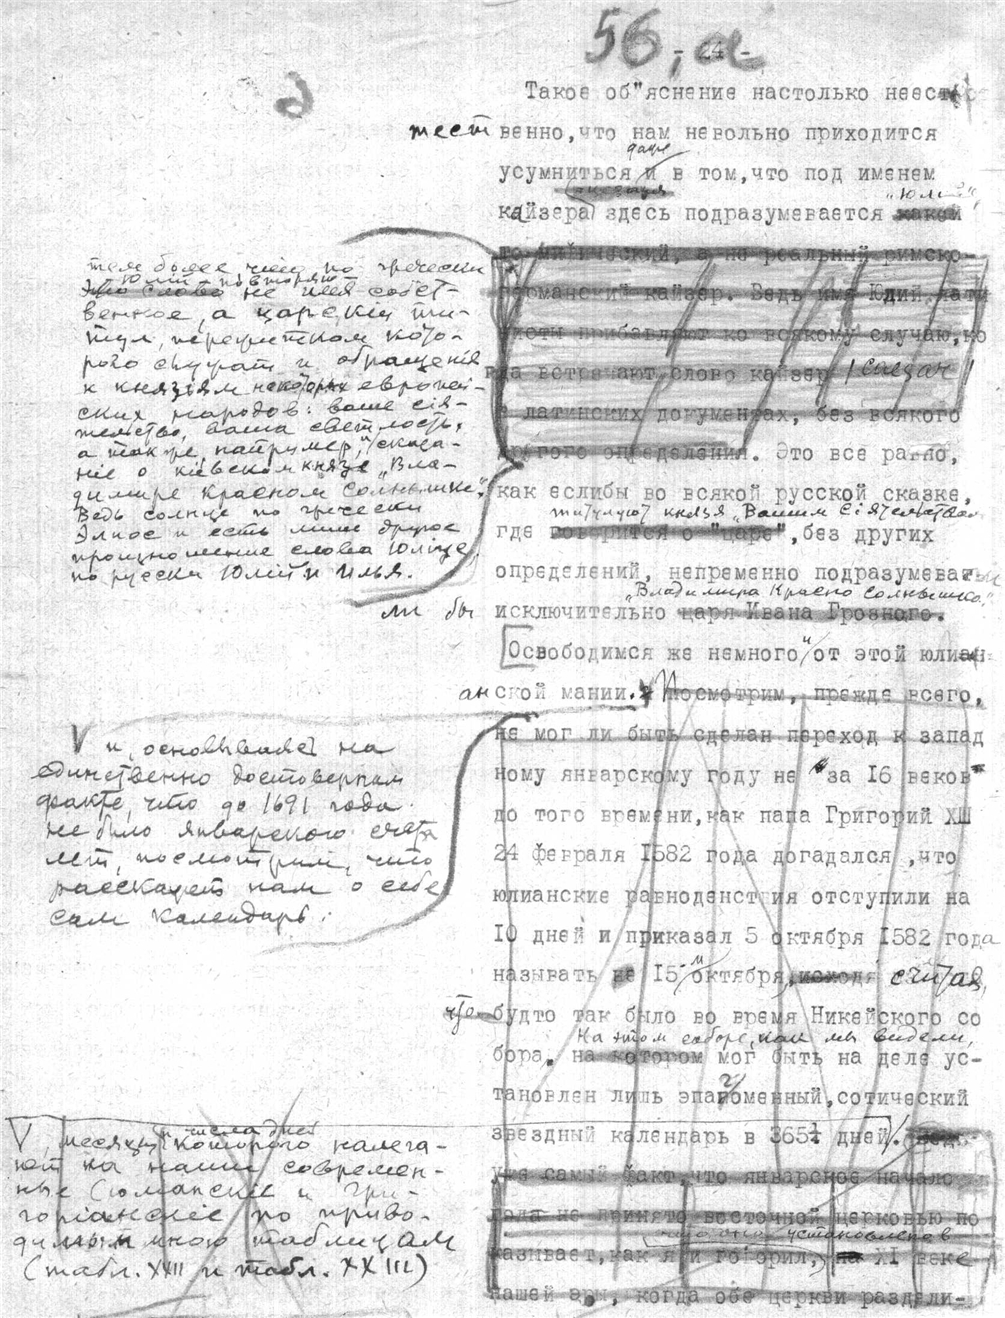 56, а
- 24 -
Такое об"яснение настолько неест
тест венно, что нам невольно приходится
даже
усумниться и в том, что под именем
"Юлий"
кайзера здесь подразумевается какой
то мифический, а не реальный римско-
германский кайзер. Ведь имя Юлий, лати
нисты прибавляют ко всякому случаю, ко
гда встречают слово кайзер (Caesar)
в латинских документах, без всякого
другого определения. Это все равно,
как еслибы во всякой русской сказке,
титулуют князя "Вашим Сіятельством"
где говорится о "царе", без других
определений, непременно подразумевать
"Владимира Красно Солнышко"
ли бы исключительно царя Ивана Грозного.
тем более что по гречески
Юлий повторяю
это слово не имя собст-
венное, а царский ти-
тул, пережитком кото-
рого служат и обращения
к князьям некоторых европей-
ских народов: ваше сія-
тельство, ваша светлость,
а также, например, и сказа-
ніе о кіевском князе "Вла-
димире Красном Солнышке".
Ведь солнце по гречески
Элиос и есть лишь другое
произношение слова Юліус,
по русски Юлий и Илья.
Освободимся же немного и от этой юлиан-
анской мании. Посмотрим, прежде всего,
не мог ли быть сделан переход к запад
ному январскому году не "за 16 веков"
до того времени, как папа Григорий ХШ
24 февраля 1582 года догадался, что
юлианские равноденствия отступили на
10 дней и приказал 5 октября 1582 года
называть не 15м октября, исходя считая,
что будто так было во время Никейского со
На этом соборе, как мы видели,
бора, на котором мог быть на деле ус-
тановлен лишь эпагоменный, сотический
звездный календарь в 365¼ дней. Ведь
уже самый факт, что январское начало
года не принято восточной церковью по
что оно установлено в
казывает, как я и говорил, на XI веке
нашей эры, когда обе церкви раздели-
V и, основываясь на
единственно достоверном
факте, что до 1691 года
не было январского счета
лет, посмотрим, что
расскажет нам о себе
сам календарь.
V, месяцы и числа дней
которого налега-
ют на наши современ-
ные (юлианскіе и гри-
горіанскіе по приво-
димым мною таблицам
(табл. XXII и табл. XXIII)